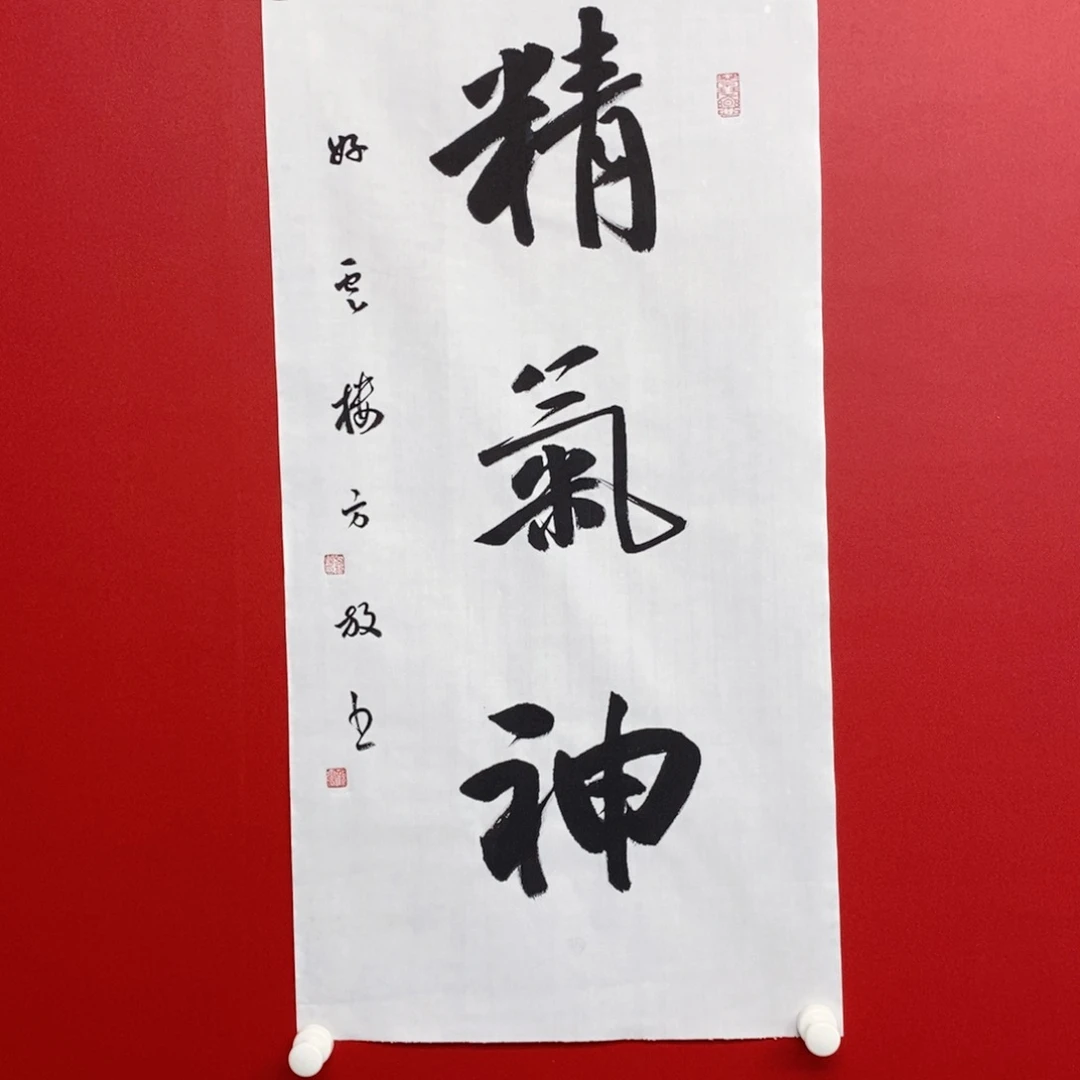 精氣神
好雲樓方放主